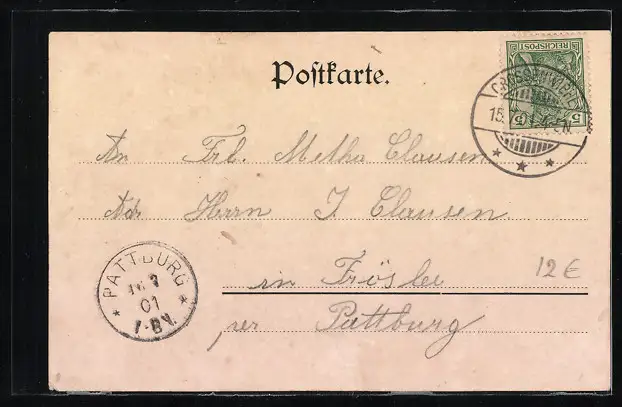 Postkarte.
REICHSPOST
5 5
15.
An Frl. Metha Clausen
Adr Herrn J Clausen
in Frösler
per Pattburg
12 €
PATTBURG
01
7-8V.